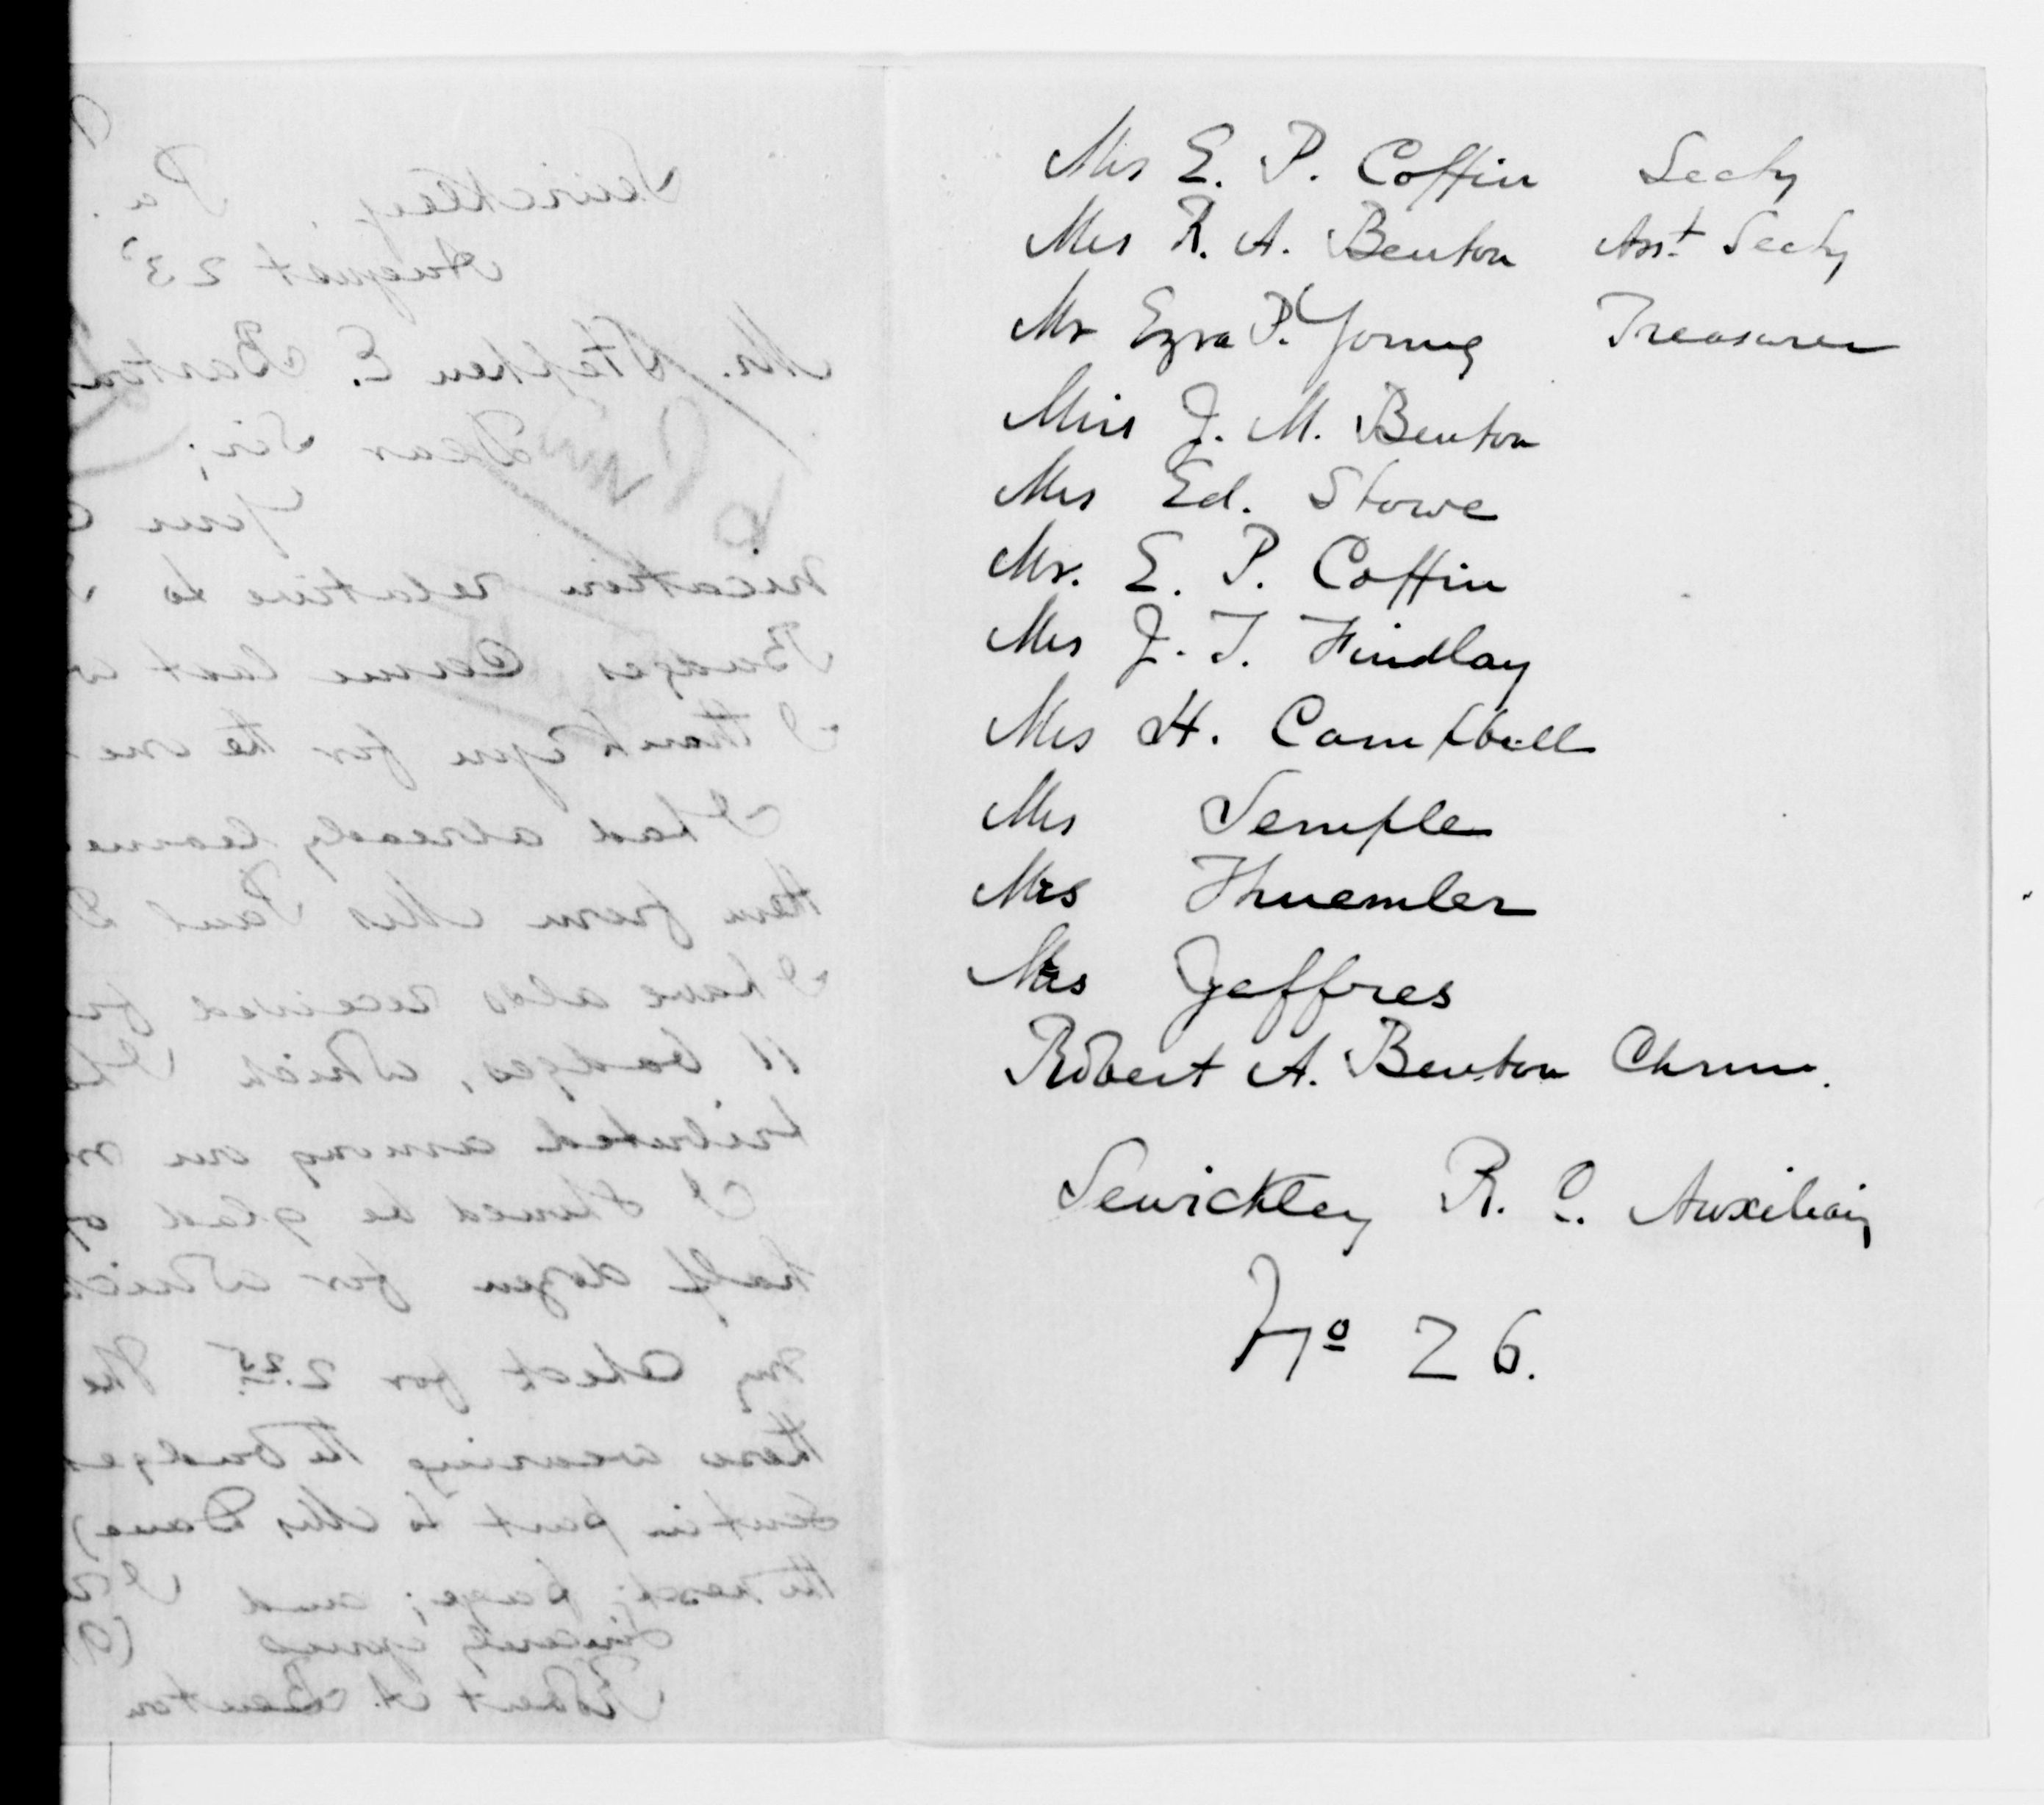 Mrs E. P. Coffin Secty
Mrs R. A. Benton Asst. Secty
Mr Ezra P. Young Treasurer
Miss J. M. Benton
Mrs Ed. Stowe
Mr. E. P. Coffin
Mrs J. T. Findlay
Mrs H. Campbell
Mrs Semple
Mrs Thuemler
Mrs Jeffres
Robert A. Benton Chrmn.
Sewickley R. C. Auxiliary
No 26.
Sewickley, Pa.
August 23
Mr. Stephen E. Barton,
Dear Sir;
Your
nication relative to
Badges came last
I thank you for the one
I had already
them from Mrs Paul
I have also received
11 badges, which
tributed among our
I should be glad
half dozen for which
my check for 2.25 The
those wearing the badges
sent in part to Mrs
the next page; and I
Sincerely yours
Robert A. Benton